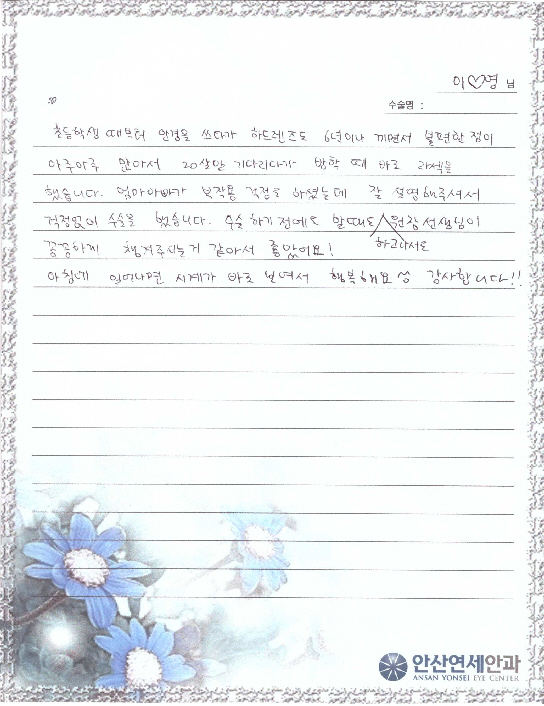 이♡영 님
수술명 :
초등학생 때부터 안경을 쓰다가 하드렌즈도 6년이나 끼면서 불편한 점이
아주아주 많아서 20살만 기다리다가 방학 때 바로 라섹을
했습니다. 엄마아빠가 부작용 걱정을 하셨는데 잘 설명해주셔서
걱정없이 수술을 했습니다. 수술 하기 전에도 할때도 원장선생님이
하고나서도
꼼꼼하게 챙겨주시는거 같아서 좋았어요!
아침에 일어나면 시계가 바로 보여서 행복해요 감사합니다!!
안산연세안과
ANSAN YONSEI EYE CENTER